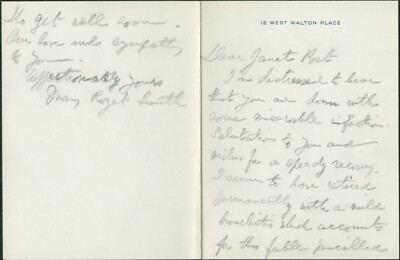 12 WEST WALTON PLACE
Dear Janet Post
I'm distressed to hear
that you are down with
some miserable infection.
Salutations to you and
wishes for a speedy recovery.
I seem to have retired
permanently with a mild
bronchitis which accounts
for this feeble pencilled
Do get well soon.
Our love and sympathy
to you.
Affectionately yours
Mary Rozet Smith